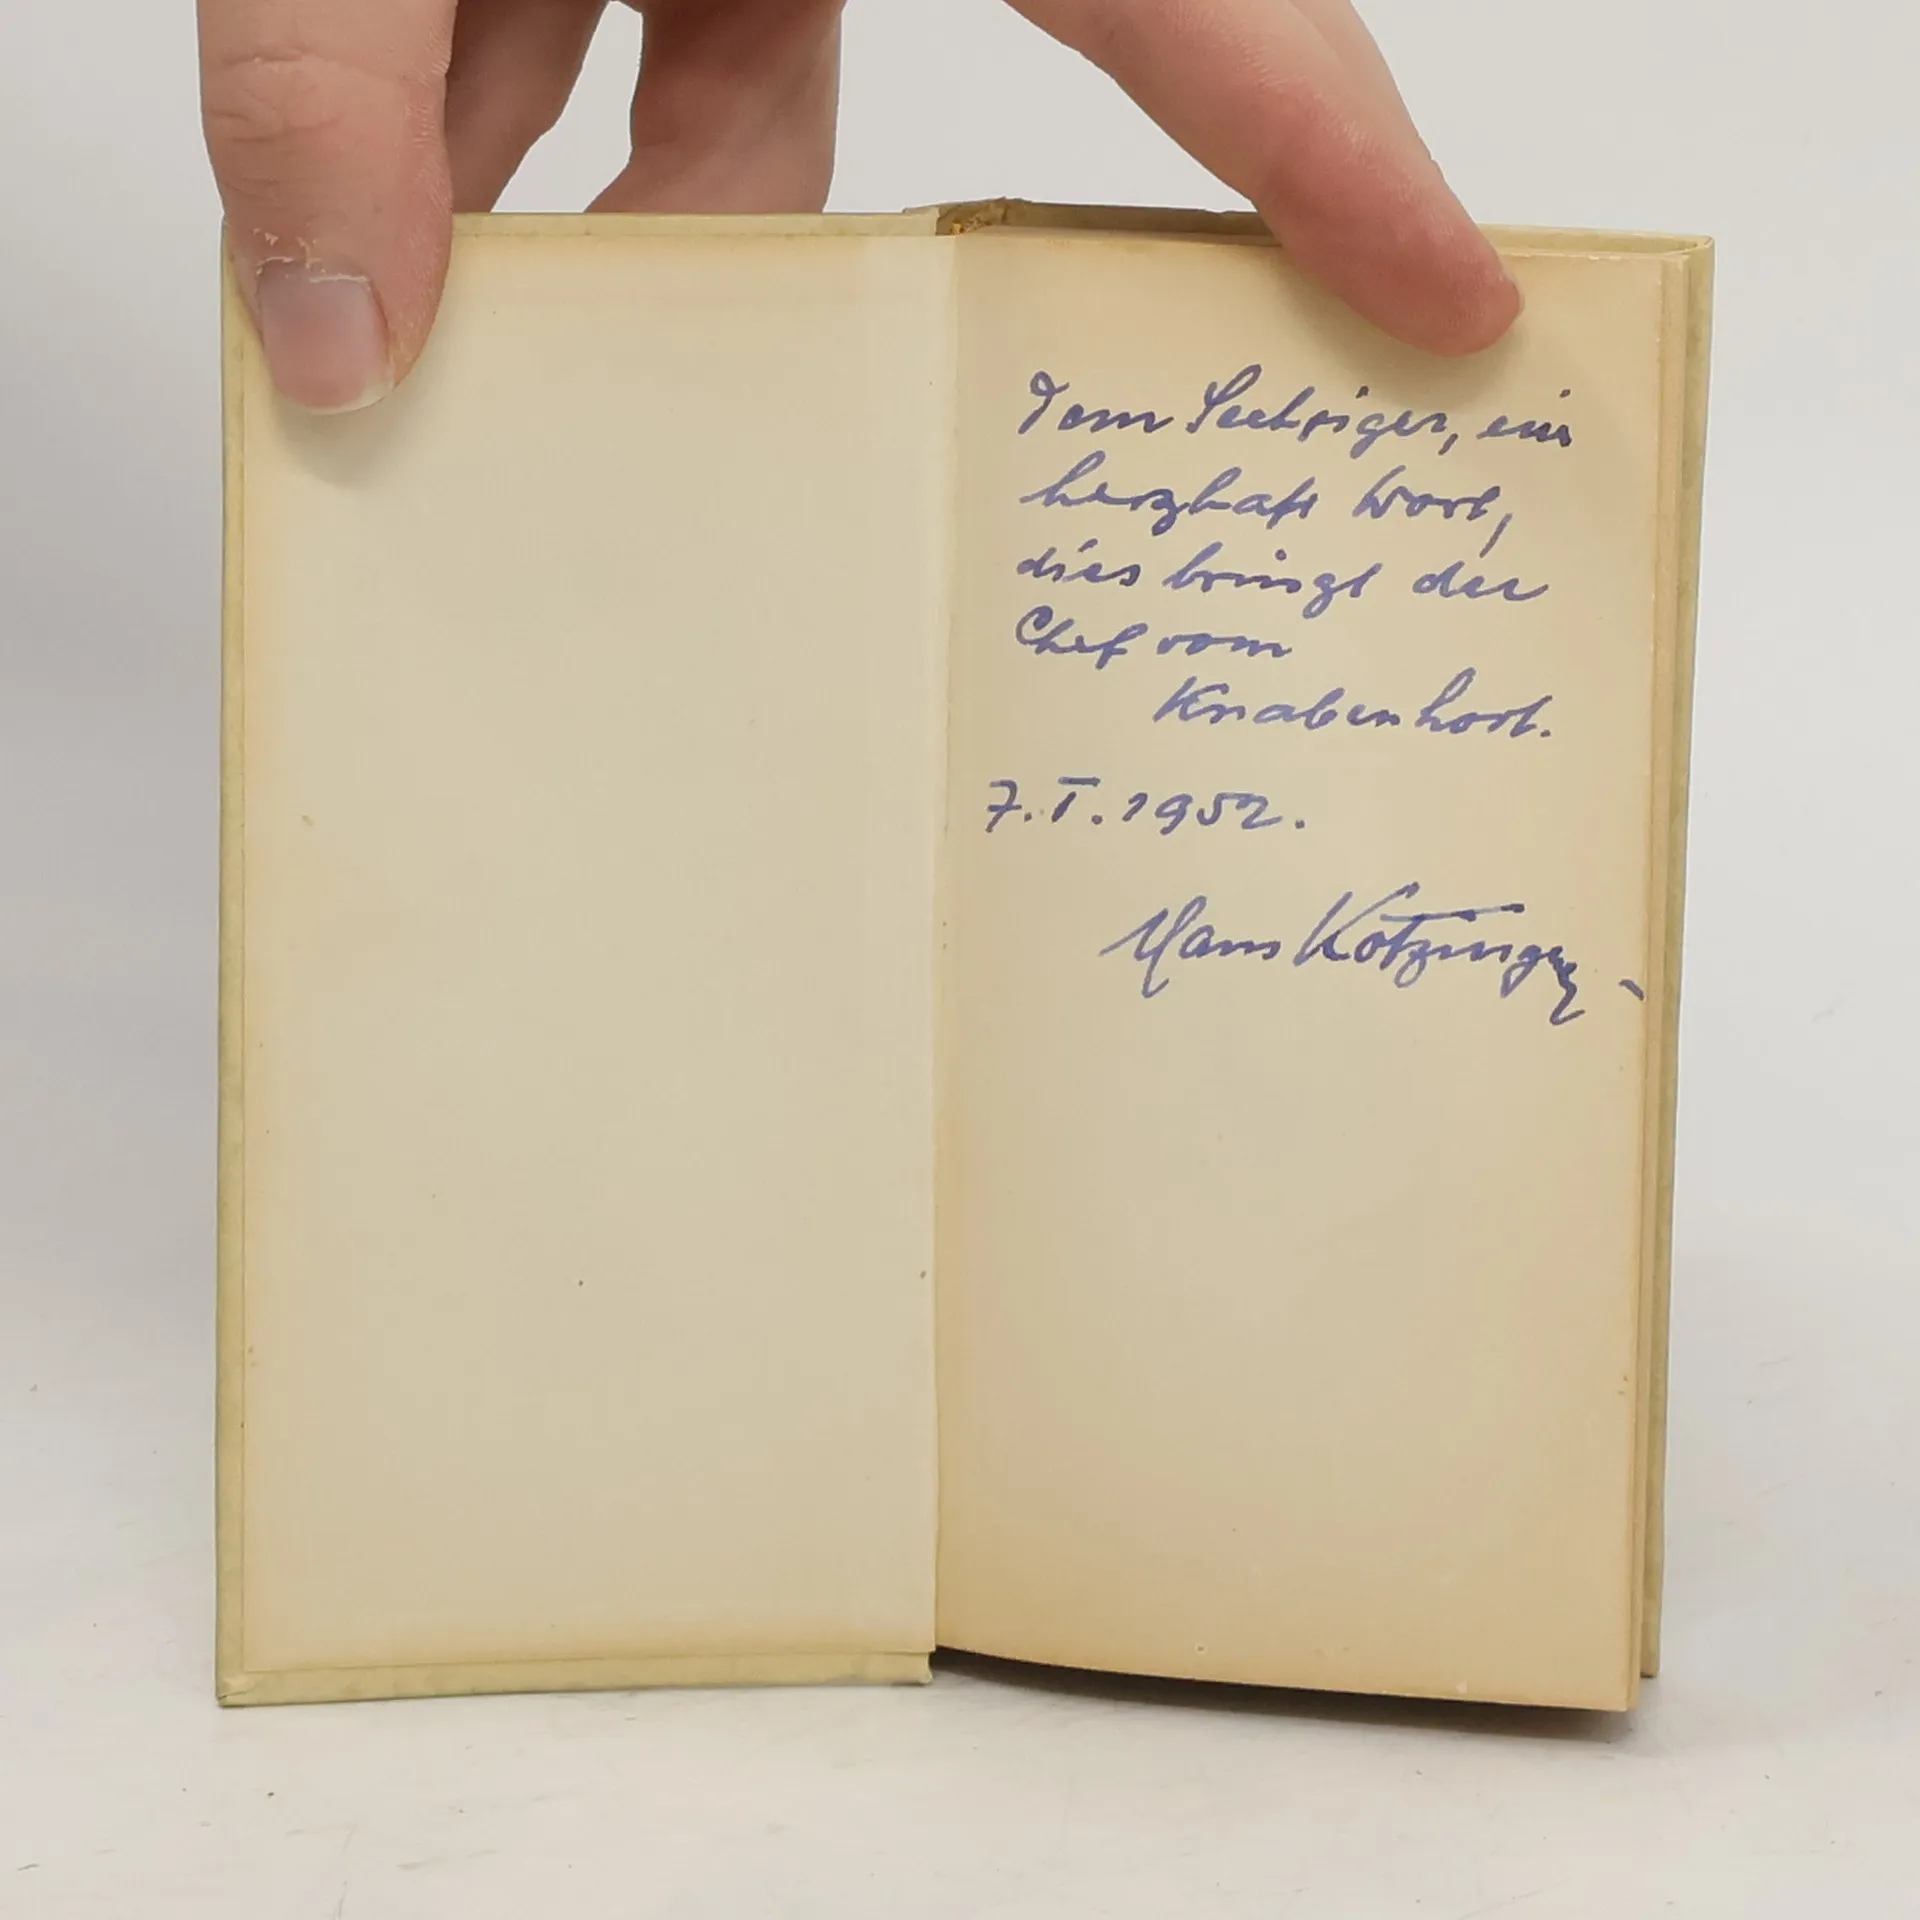 Dem Seebriger, ein
herzhaft Wort,
dies bringt der
Chef vom
Knabenhort.
7.I.1952.
Hans Kotzinger